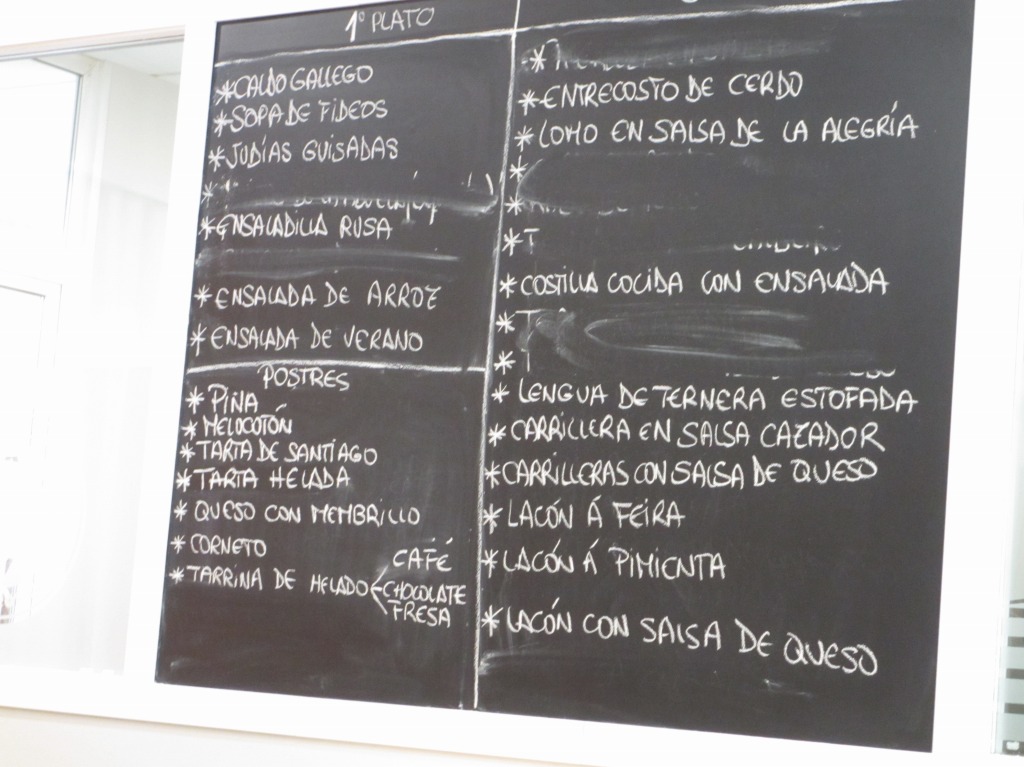 1º PLATO
*CALDO GALLEGO
*SOPA DE FIDEOS
*JUDÍAS GUISADAS
*
*ENSALADILLA RUSA
*ENSALADA DE ARROZ
*ENSALADA DE VERANO
POSTRES
*PIÑA
*MELOCOTÓN
*TARTA DE SANTIAGO
*TARTA HELADA
*QUESO CON MEMBRILLO
*CORNETO
*TARRINA DE HELADO
CAFÉ
CHOCOLATE
FRESA
*
*ENTRECOSTO DE CERDO
*LOMO EN SALSA DE LA ALEGRÍA
*
*
*T
*COSTILLA COCIDA CON ENSALADA
*T
*T
*LENGUA DE TERNERA ESTOFADA
*CARRILLERA EN SALSA CAZADOR
*CARRILLERAS CON SALSA DE QUESO
*LACÓN Á FEIRA
*LACÓN Á PIMIENTA
*LACÓN CON SALSA DE QUESO